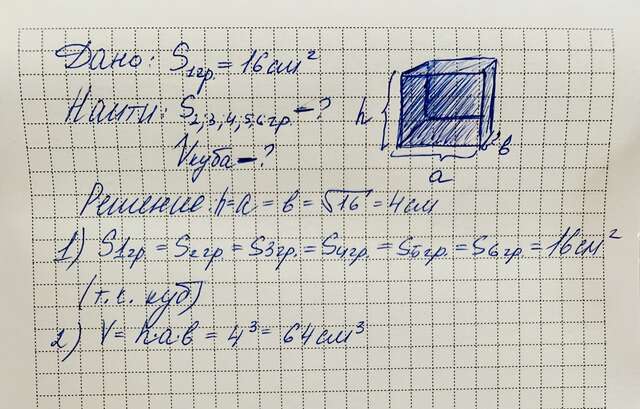 Дано: S1гр. = 16 см²
Найти: S2,3,4,5,6 гр. – ?
Vкуба – ?
h
a
в
Решение: h=a=в=√16=4см
1) S1гр. = S2гр. = S3гр. = S4гр. = S5гр. = S6гр. = 16см²
(т.к. куб)
2) V = h·a·в = 4³ = 64см³